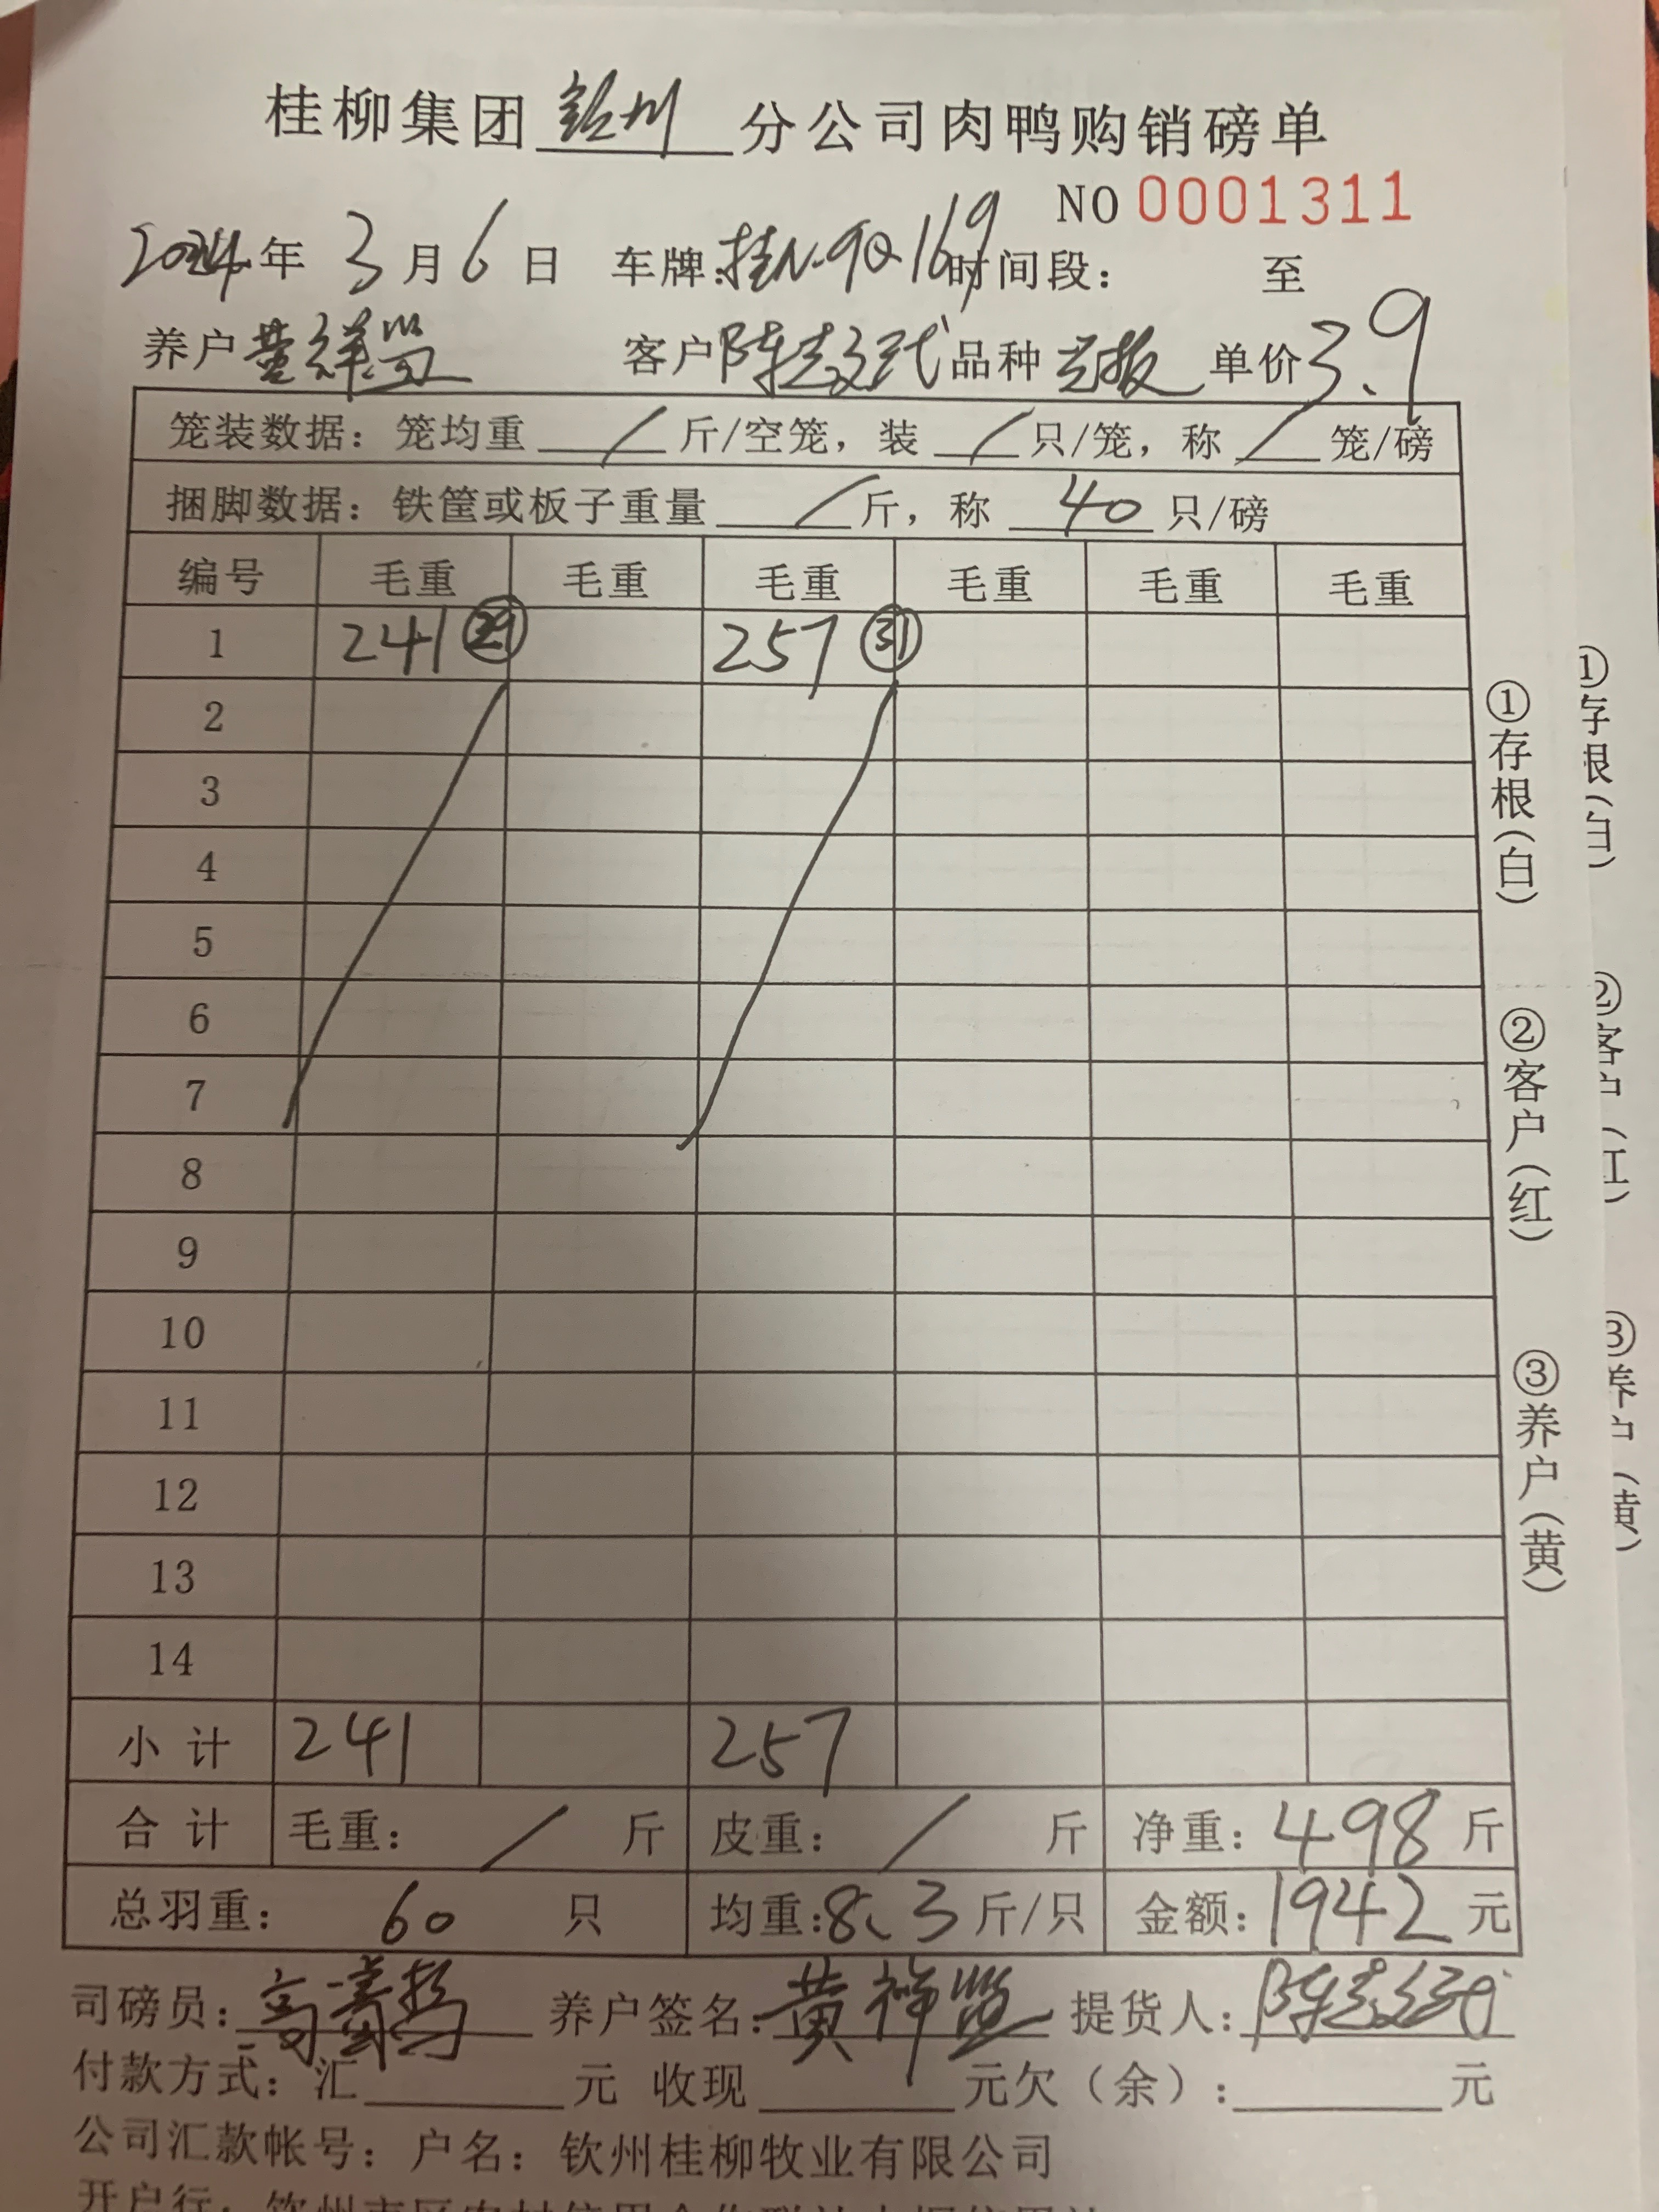 桂柳集团 钦州 分公司肉鸭购销磅单
NO 0001311
2024年 3月6日 车牌:桂N·9Q169 时间段: 至
养户 黄祥 客户 陈 品种 单价 3.9
笼装数据:笼均重 / 斤/空笼,装 / 只/笼,称 / 笼/磅
捆脚数据:铁筐或板子重量 / 斤,称 40 只/磅
编号 毛重 毛重 毛重 毛重 毛重 毛重
1 241 ㉙ 257 ㉛
2
3
4
5
6
7
8
9
10
11
12
13
14
小计 241 257
合计 毛重: / 斤 皮重: / 斤 净重:498 斤
总羽重: 60 只 均重:8.3 斤/只 金额:1942 元
司磅员: 养户签名:黄祥 提货人:陈
付款方式:汇 元 收现 元欠(余): 元
公司汇款帐号:户名:钦州桂柳牧业有限公司
开户行:
①存根(白) ②客户(红) ③养户(黄)
①存根(白) ②客户(红) ③养户(黄)